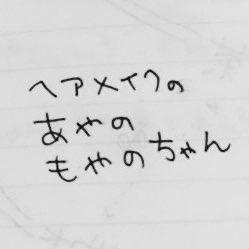 ヘアメイクの
あやの
もやのちゃん